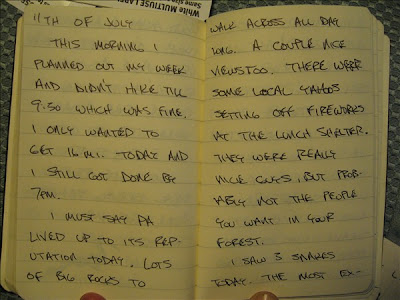 White MULTIUSE LABE
Same size
11TH OF JULY
THIS MORNING I
PLANNED OUT MY WEEK
AND DIDN'T HIKE TILL
9:50 WHICH WAS FINE.
I ONLY WANTED TO
GET 16 MI. TODAY AND
I STILL GOT DONE BY
7PM.
I MUST SAY PA
LIVED UP TO ITS REP-
UTATION TODAY. LOTS
OF BIG ROCKS TO
WALK ACROSS ALL DAY
LONG. A COUPLE NICE
VIEWS TOO. THERE WERE
SOME LOCAL YAHOOS
SETTING OFF FIREWORKS
AT THE LUNCH SHELTER.
THEY WERE REALLY
NICE GUYS, BUT PROB-
ABLY NOT THE PEOPLE
YOU WANT IN YOUR
FOREST.
I SAW 3 SNAKES
TODAY. THE MOST EX-